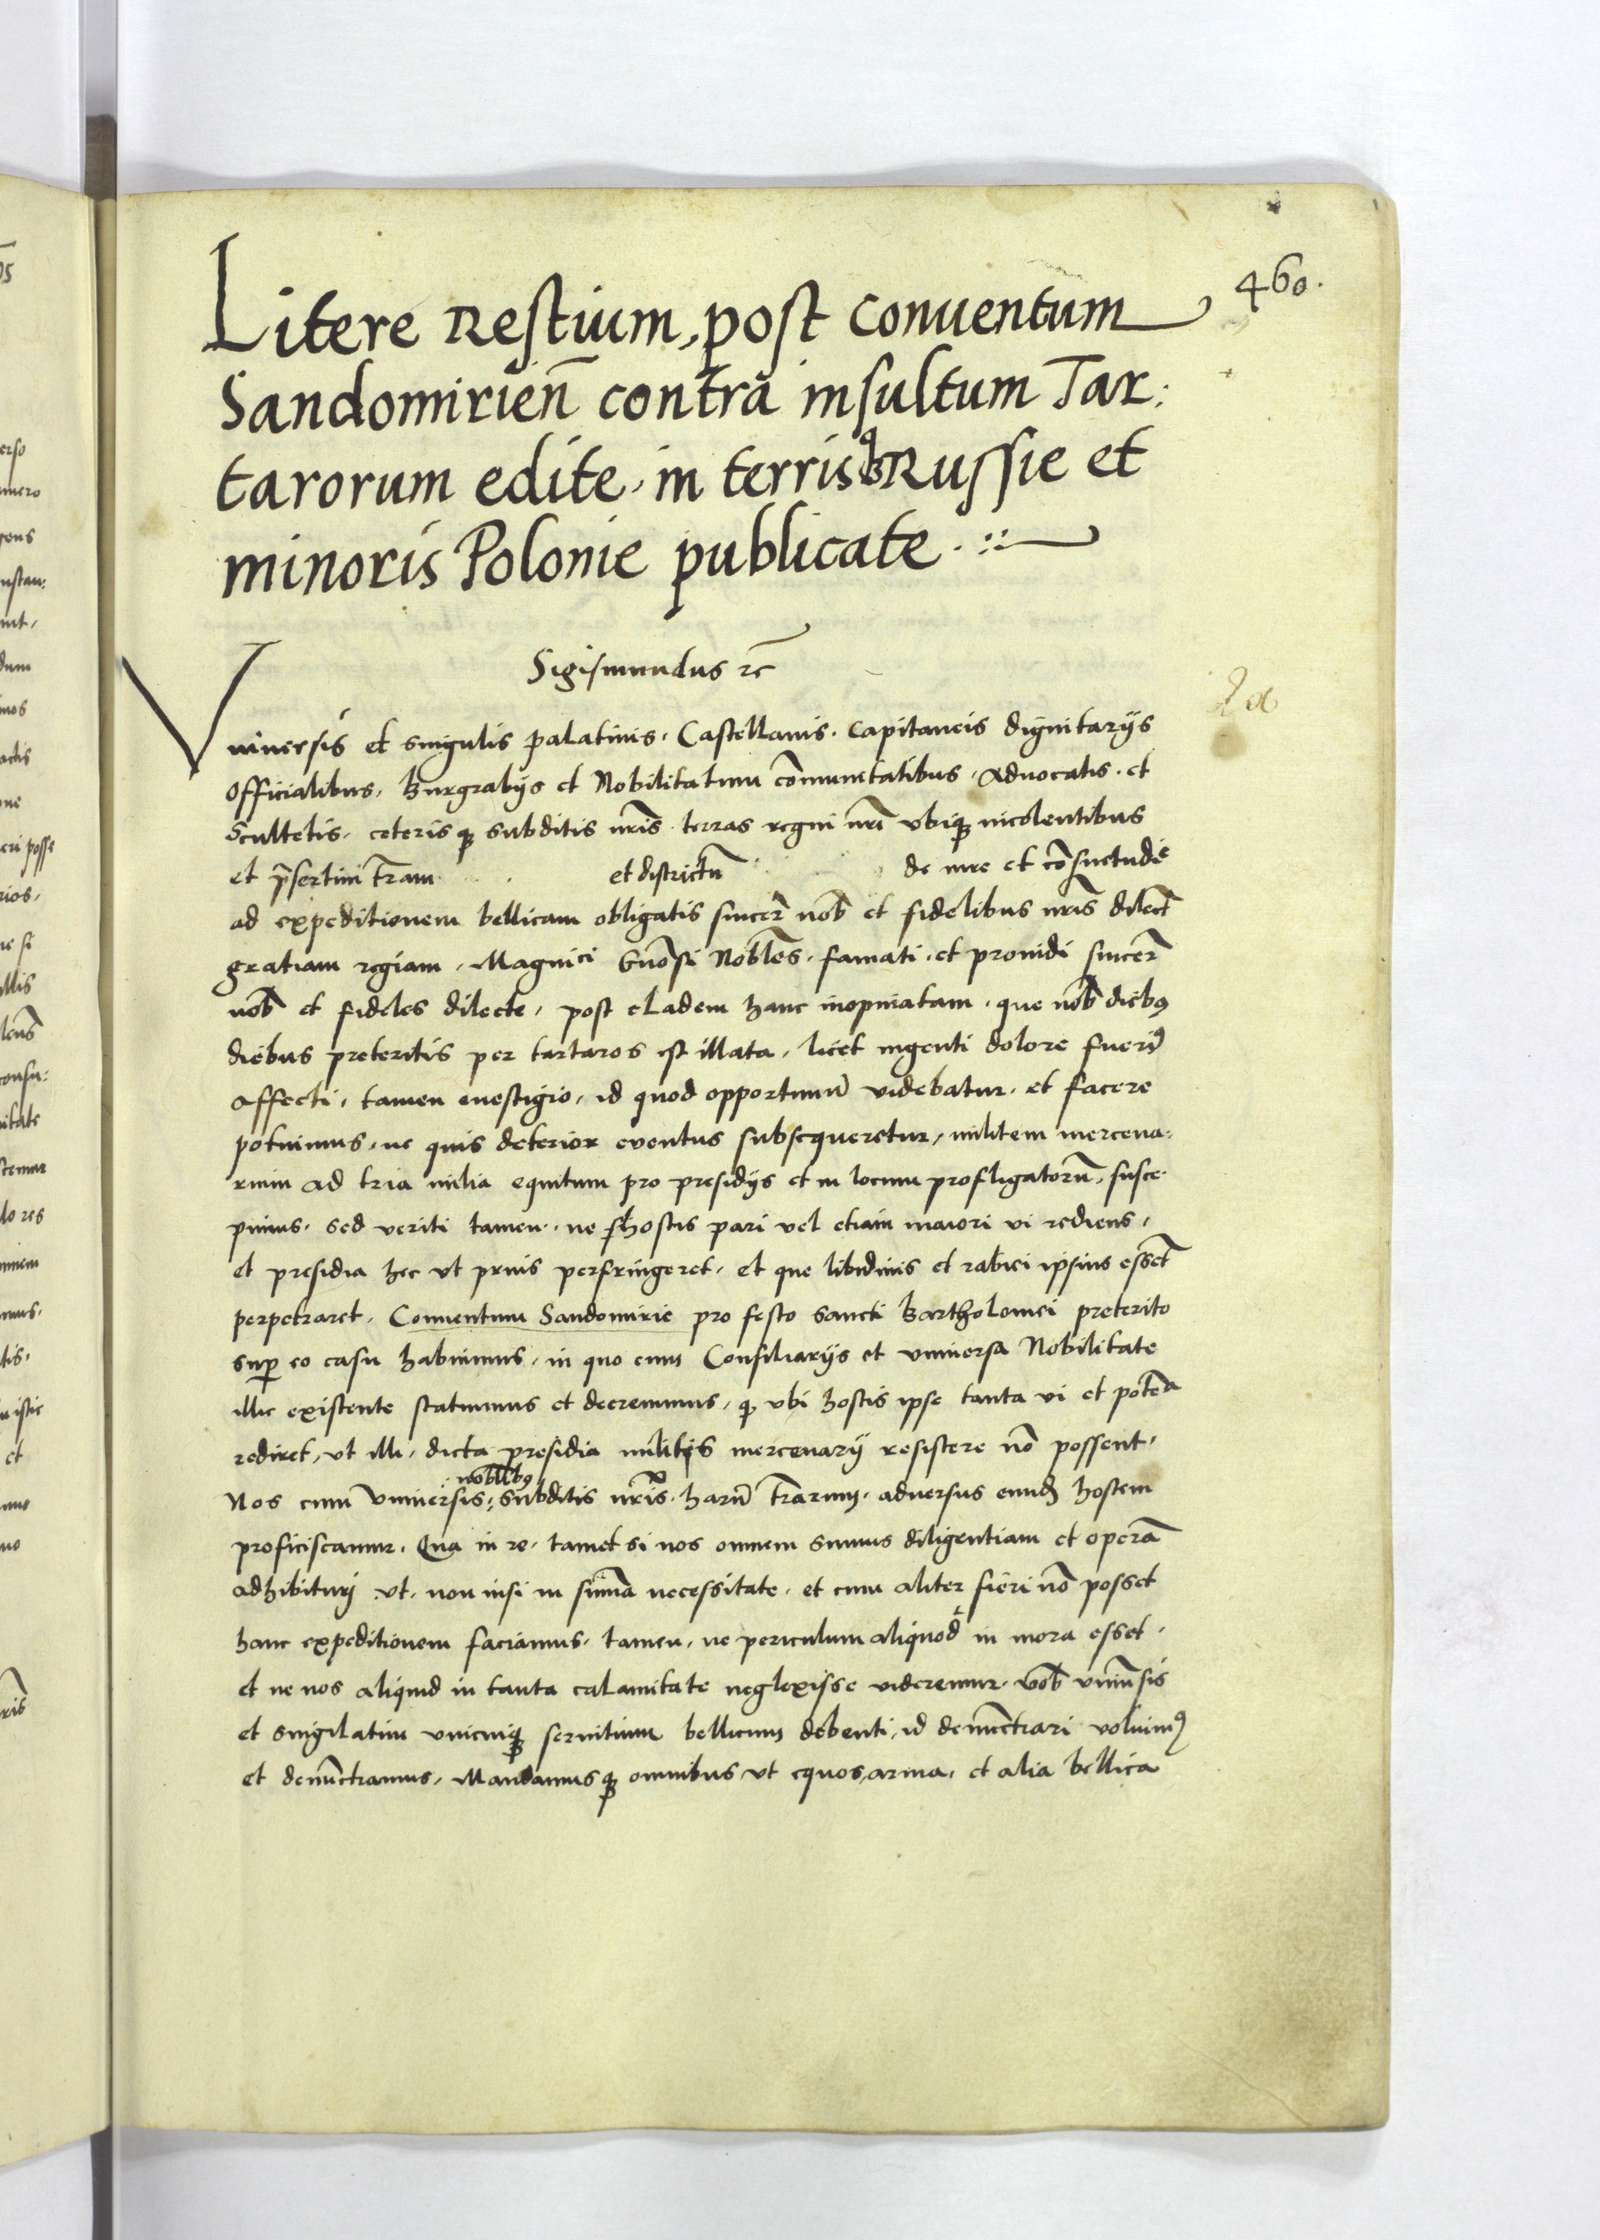 460.
Litere Restium, post conuentum
Sandomirien̄ contra insultum Tar:
tarorum edite, in terrisqꝫ Russie et
minoris Polonie publicate
Sigismundus ꝛc̄
Vniuersis et singulis palatinis, Castellanis, Capitaneis dignitarijs
Officialibus, Burgrabijs et Nobilitatum cōmunitatibus, Aduocatis, et
Scultetis, ceterisqꝫ subditis nr̄is terras regni nr̄i vbiqꝫ incolentibus
et p̄sertim tr̄am et districtū de iure et cōsuetudīe
ad expeditionem bellicam obligatis sincer̄ nob̄ et fidelibus nr̄is dilect̄
gratiam regiam, Magnici Gn̄osi Nobl̄es, famati, et prouidi sincer̄
nob̄ et fideles dilecte, post cladem hanc inopinatam, que nob̄ diebꝰ
diebus preteritis per tartaros est illata, licet ingenti dolore fuerimꝰ
affecti, tamen euestigio, id quod opportunū videbatur, et facere
potuimus, ne quis deterior euentus subsequeretur, militem mercena:
rium ad tria milia equitum pro presidijs et in locum profligatorū, susce-
pimus, sed veriti tamen, ne hostis pari vel etiam maiori vi rediens,
et presidia hec vt prius perfringeret, et que libidinis et rabiei ipsius essēt
perpetraret, Conuentum Sandomirie pro festo sancti Bartholomei preterito
suꝑ eo casu habuimus, in quo cum Consiliarijs et vniuersa Nobilitate
illic existente statuimus et decreuimus, ꝙ vbi hostis ipse tanta vi et potēa
rediret, vt illi, dicta presidia militis mercenarij resistere nō possent,
nobilibꝰ
Nos cum vniuersis, subditis nr̄is, harū tr̄arum, aduersus eundē hostem
proficiscamur, Qua in re, tamet si nos omnem sumus diligentiam et operā
adhibituri vt, non nisi in sum̄a necessitate, et cum aliter fieri nō posset
hanc expeditionem faciamus, tamen, ne periculum aliquod in mora esset,
et ne nos aliquid in tanta calamitate neglexisse videremur, vob̄ vniu͂sis
et singulatim vnicuiqꝫ seruitium bellicum debenti, id denūctiari voluimꝰ
et denūctiamus, Mandamusqꝫ omnibus vt equos, arma, et alia bellica